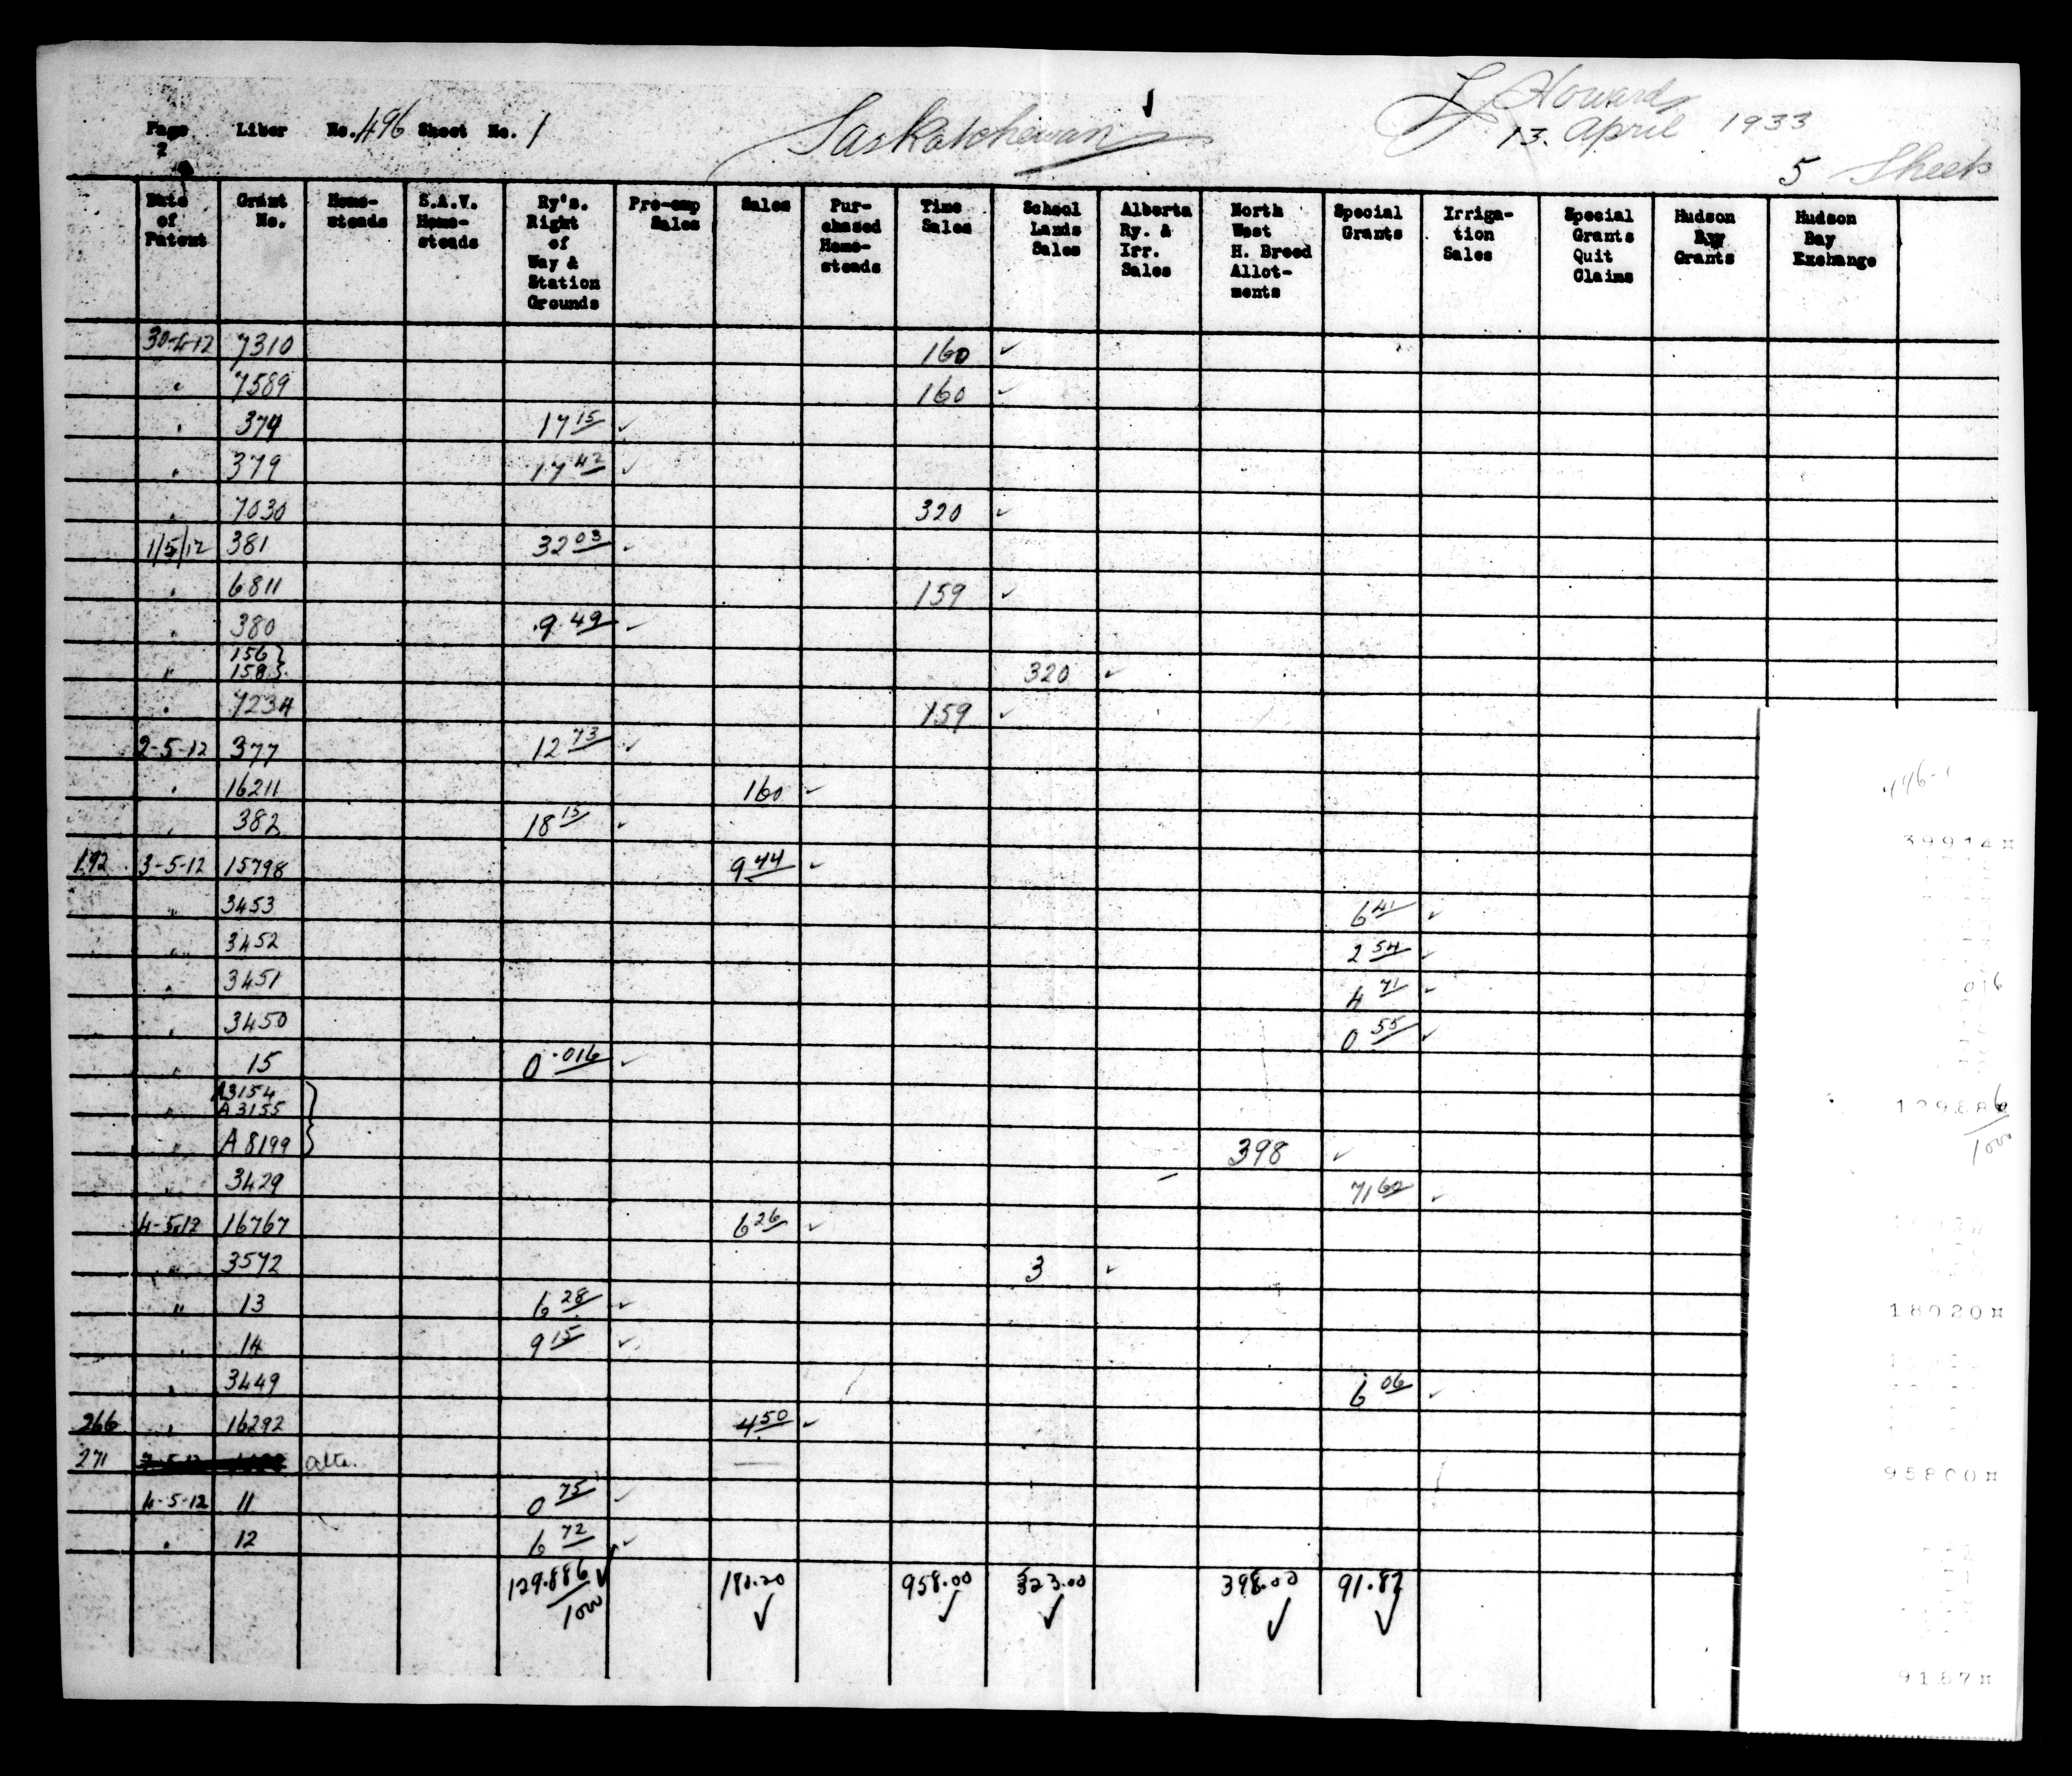 Page Liber No. 496 Sheet No. 1 Saskatchewan J Howard
2 13. April 1933
5 Sheets
Date of Patent Grant No. Home-steads S.A.V. Home-steads Ry's. Right of Way & Station Grounds Pre-emp Sales Sales Pur-chased Home-steads Time Sales School Lands Sales Alberta Ry. & Irr. Sales North West H. Breed Allot-ments Special Grants Irriga-tion Sales Special Grants Quit Claims Hudson Bay Grants Hudson Bay Exchange
30-4-12 7310 160 ✓
" 7589 160 ✓
" 374 17 15 ✓
" 379 17 42 ✓
" 7030 320 ✓
1/5/12 381 32 03 ✓
" 6811 159 ✓
" 380 9 49 ✓
156 }
" 158 } 320 ✓
" 7234 159 ✓
2-5-12 377 12 73 ✓
" 16211 160 ✓
" 382 18 15 ✓
192 3-5-12 15798 9 44 ✓
" 3453 6 41 ✓
" 3452 2 54 ✓
" 3451 4 71 ✓
" 3450 0 55 ✓
" 15 0 .016 ✓
A3154
" A3155
" A8199 } 398 ✓
" 3429 71 60 ✓
4-5-12 16767 6 26 ✓
" 3572 3 ✓
" 13 6 28 ✓
" 14 9 15 ✓
" 3449 6 06 ✓
266 " 16292 4 50 ✓
271 alta.
4-5-12 11 0 75 ✓
" 12 6 72 ✓
129.886/1000 ✓ 180.20 ✓ 958.00 ✓ 323.00 ✓ 398.00 ✓ 91.87 ✓
496-1
39914¤
016
129886/1000
18020¤
95800¤
9187¤